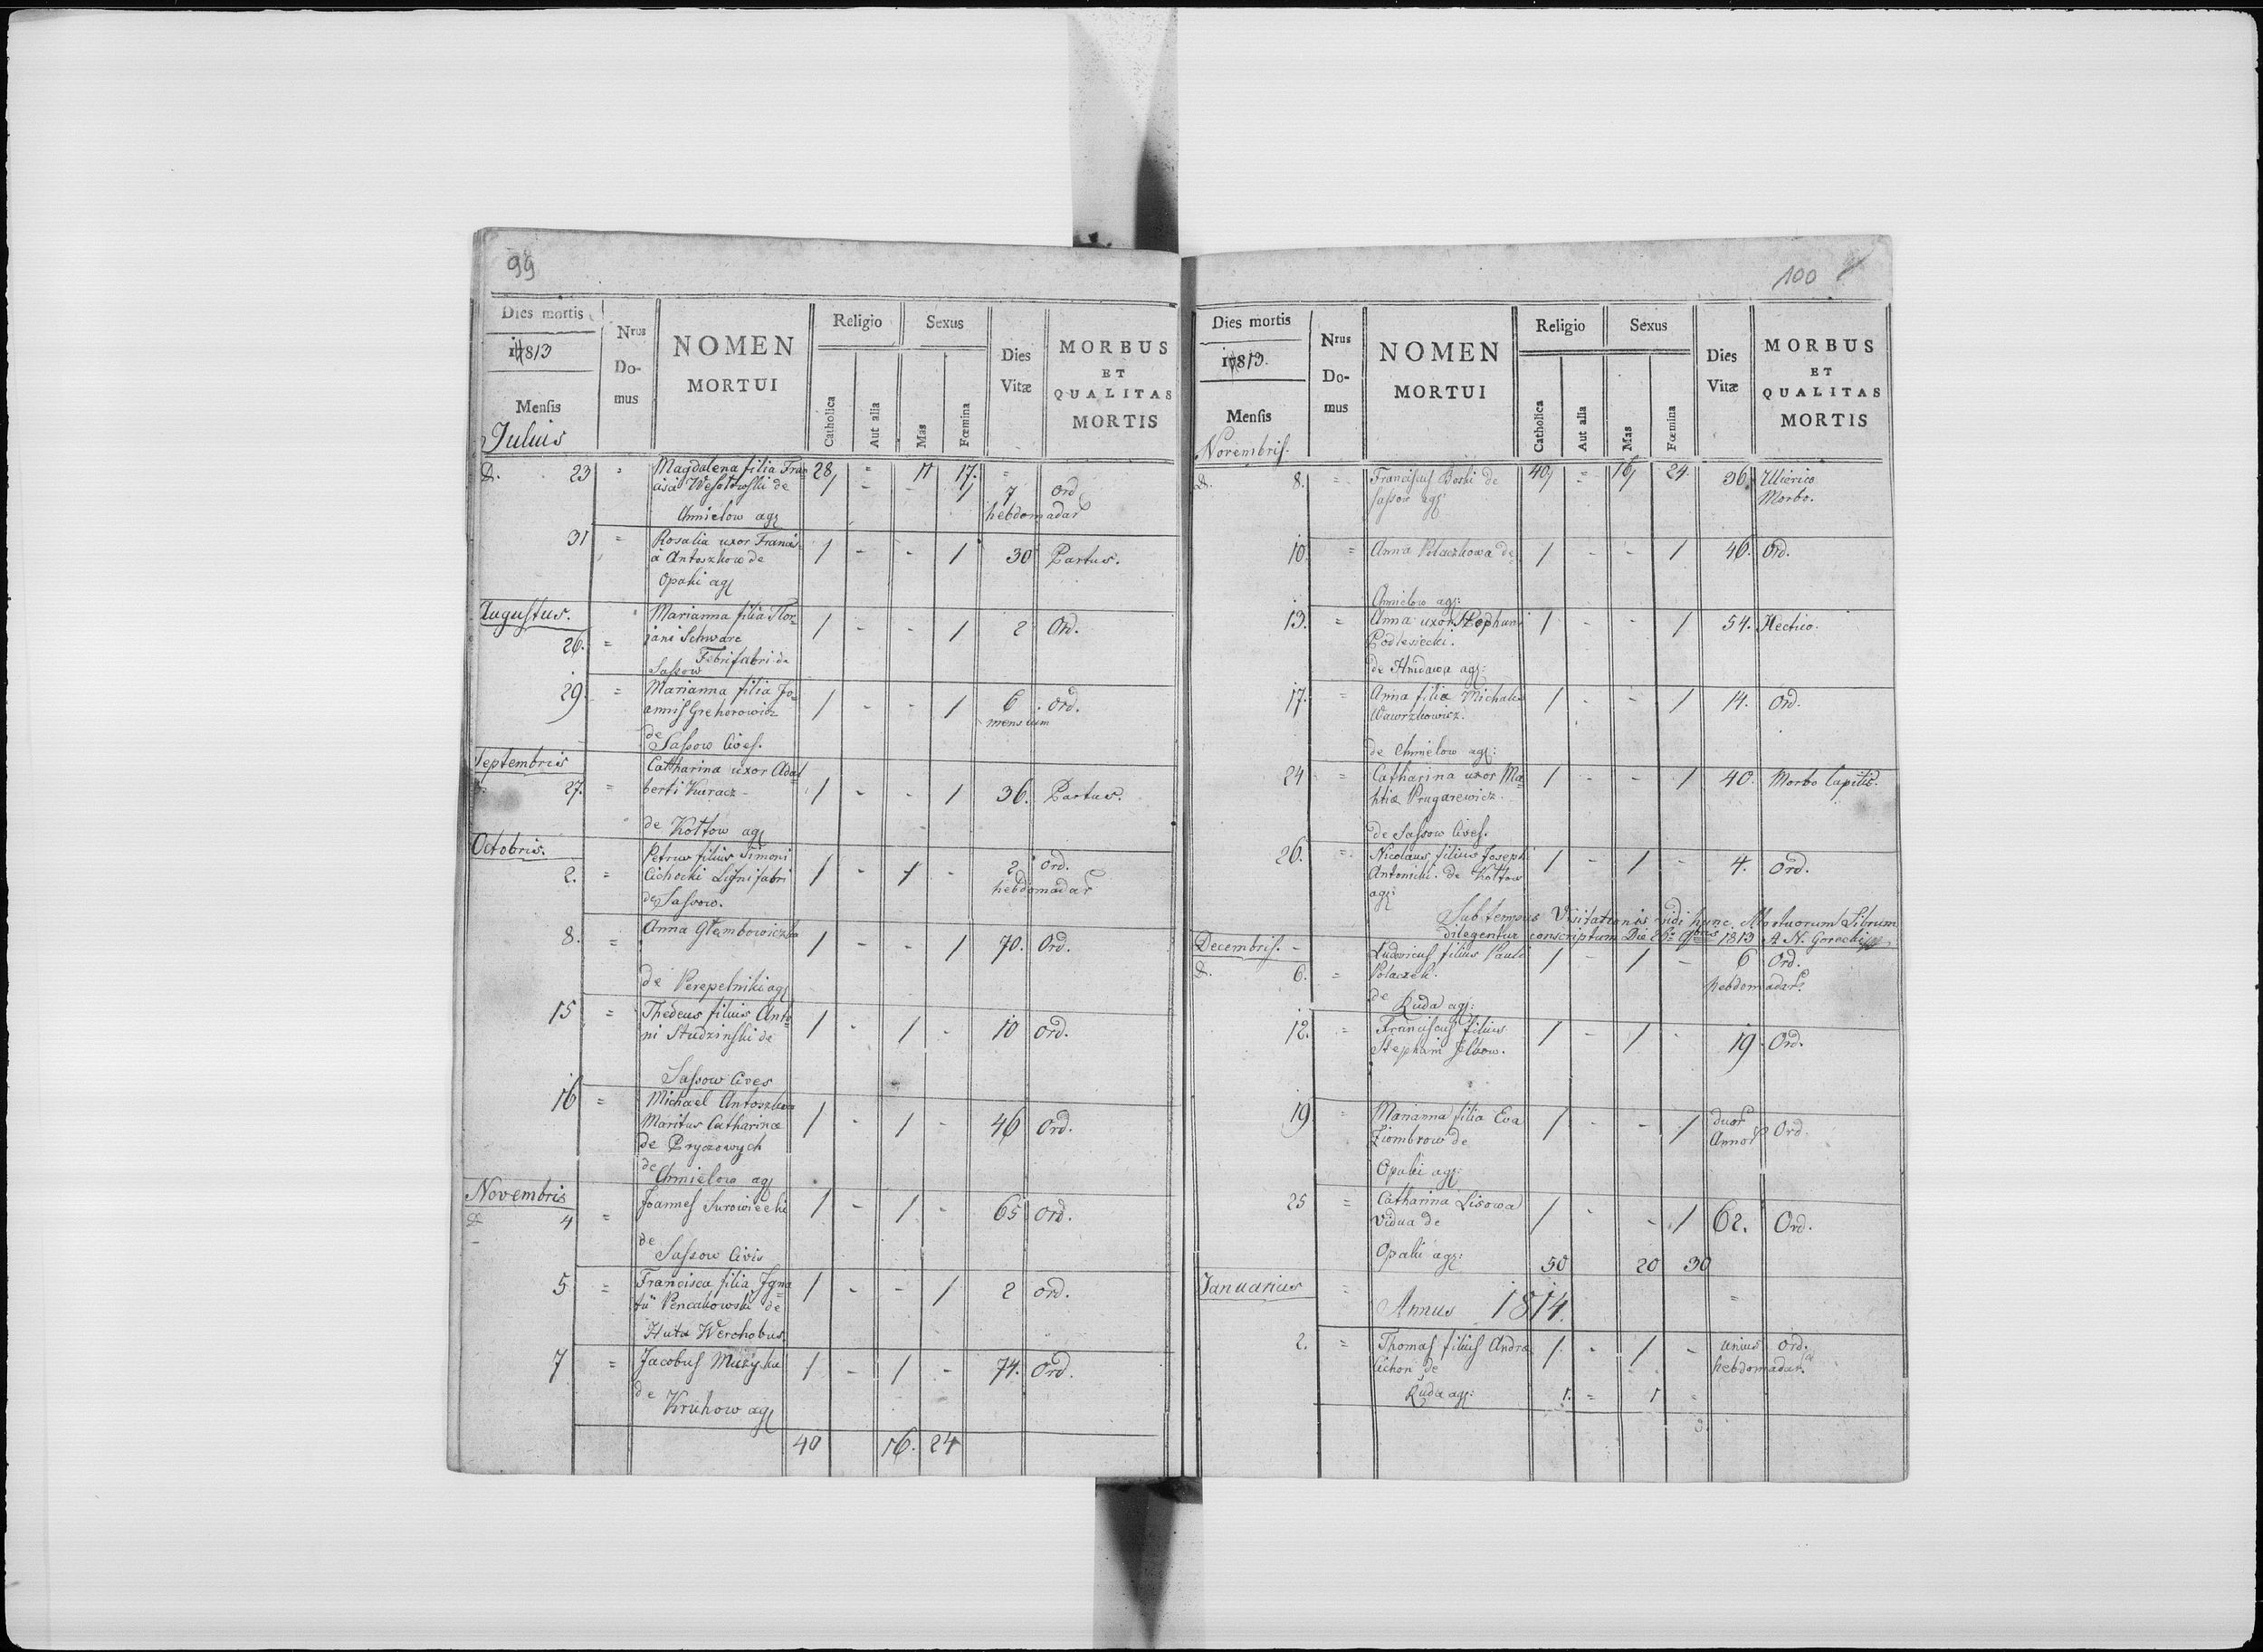 99
Dies mortis
1813
Mensis
Julius
Nrus
Do-
mus
NOMEN
MORTUI
Religio
Catholica
Aut alia
Sexus
Mas
Fœmina
Dies
Vitæ
MORBUS
ET
QUALITAS
MORTIS
D. 23 = Magdalena filia Fran= 28 = 11 17. =
cisci Wesołowski de 1 - - 1 7 Ord
Chmielow ag hebdomadar
31 = Rosalia uxor Francis
ci Antoszkow de 1 - - 1 30 Partus.
Opaki ag
Augustus.
Marianna filia Flor=
26. = jani Schwarc 1 - - 1 2 Ord.
Febrifabri de
Sassow
29. = Marianna filia Jo=
annis Grehorowicz 1 - - 1 6 Ord.
mensium
de Sassow Cives.
Septembris
Catharina uxor Adal
27. = berti Kuracz 1 - - 1 36. Partus.
de Kottow ag
Octobris.
Petrus filius Simoni
2. = Cichocki Lignifabri 1 - 1 - 2 Ord.
hebdomadar
de Sassow.
8. = Anna Głembowiczka 1 - - 1 70. Ord.
de Perepelniki ag
15 = Thedeus filius Anto=
ni Studzinski de 1 - 1 - 10 Ord.
Sassow Cives
16 = Michael Antoszkow
Maritus Catharinæ 1 - 1 - 46 Ord.
de Pryczowych
de Chmielow ag
Novembris
D 4 = Joannes Surowiecki 1 - 1 - 65 Ord.
de Sassow Civis
5 = Francisca filia Igna 1 - - 1 2 Ord.
tii Pencakowski de
Huta Werchobus
7 = Jacobus Muzyka 1 - 1 - 74. Ord.
de Kruhow ag
40 16. 24
100
Dies mortis
1813.
Mensis
Novembris.
Nrus
Do-
mus
NOMEN
MORTUI
Religio
Catholica
Aut alia
Sexus
Mas
Fœmina
Dies
Vitæ
MORBUS
ET
QUALITAS
MORTIS
D. 8. = Franciscus Boski de 40 = 16 24 36 Ulierico
Sassow ag: Morbo.
10. = Anna Polaczkowa de 1 - - 1 46. Ord.
Chmielow ag:
13. = Anna uxor Stephani 1 - - 1 54. Hectico.
Podlesiecki.
de Hudawa ag:
17. = Anna filia Michaelis 1 - - 1 14. Ord.
Wawrzkowicz.
de Chmielow ag:
24 = Catharina uxor Ma= 1 - - 1 40. Morbo Capitis.
thiæ Prugarewicz.
de Sassow Cives.
26. = Nicolaus filius Josephi 1 - 1 - 4. Ord.
Antonicki. de Kottow
ag:
Sub tempus Visitationis vidi hunc Mortuorum Librum
diligentur conscriptum Die 26 9bris 1813 A N. Gorecki
Decembris. -
D. 6. = Ludovicus filius Pauli 1 - 1 - 6 Ord.
Polaczek. hebdomadar
de Ruda ag:
12. = Franciscus filius 1 - 1 - 19 Ord.
Stephani
19 = Marianna filia Eva 1 - - 1 duor Ord.
Ziombrow de Annor
Opaki ag:
25 = Catharina Lisowa
Vidua de 1 - - 1 62. Ord.
Opaki ag: 50 20 30
Januarius = Annus 1814.
2. = Thomas filius Andræ 1 - 1 - unius Ord.
Cichon de hebdomadar.
Ruda ag: 1. = 1 =